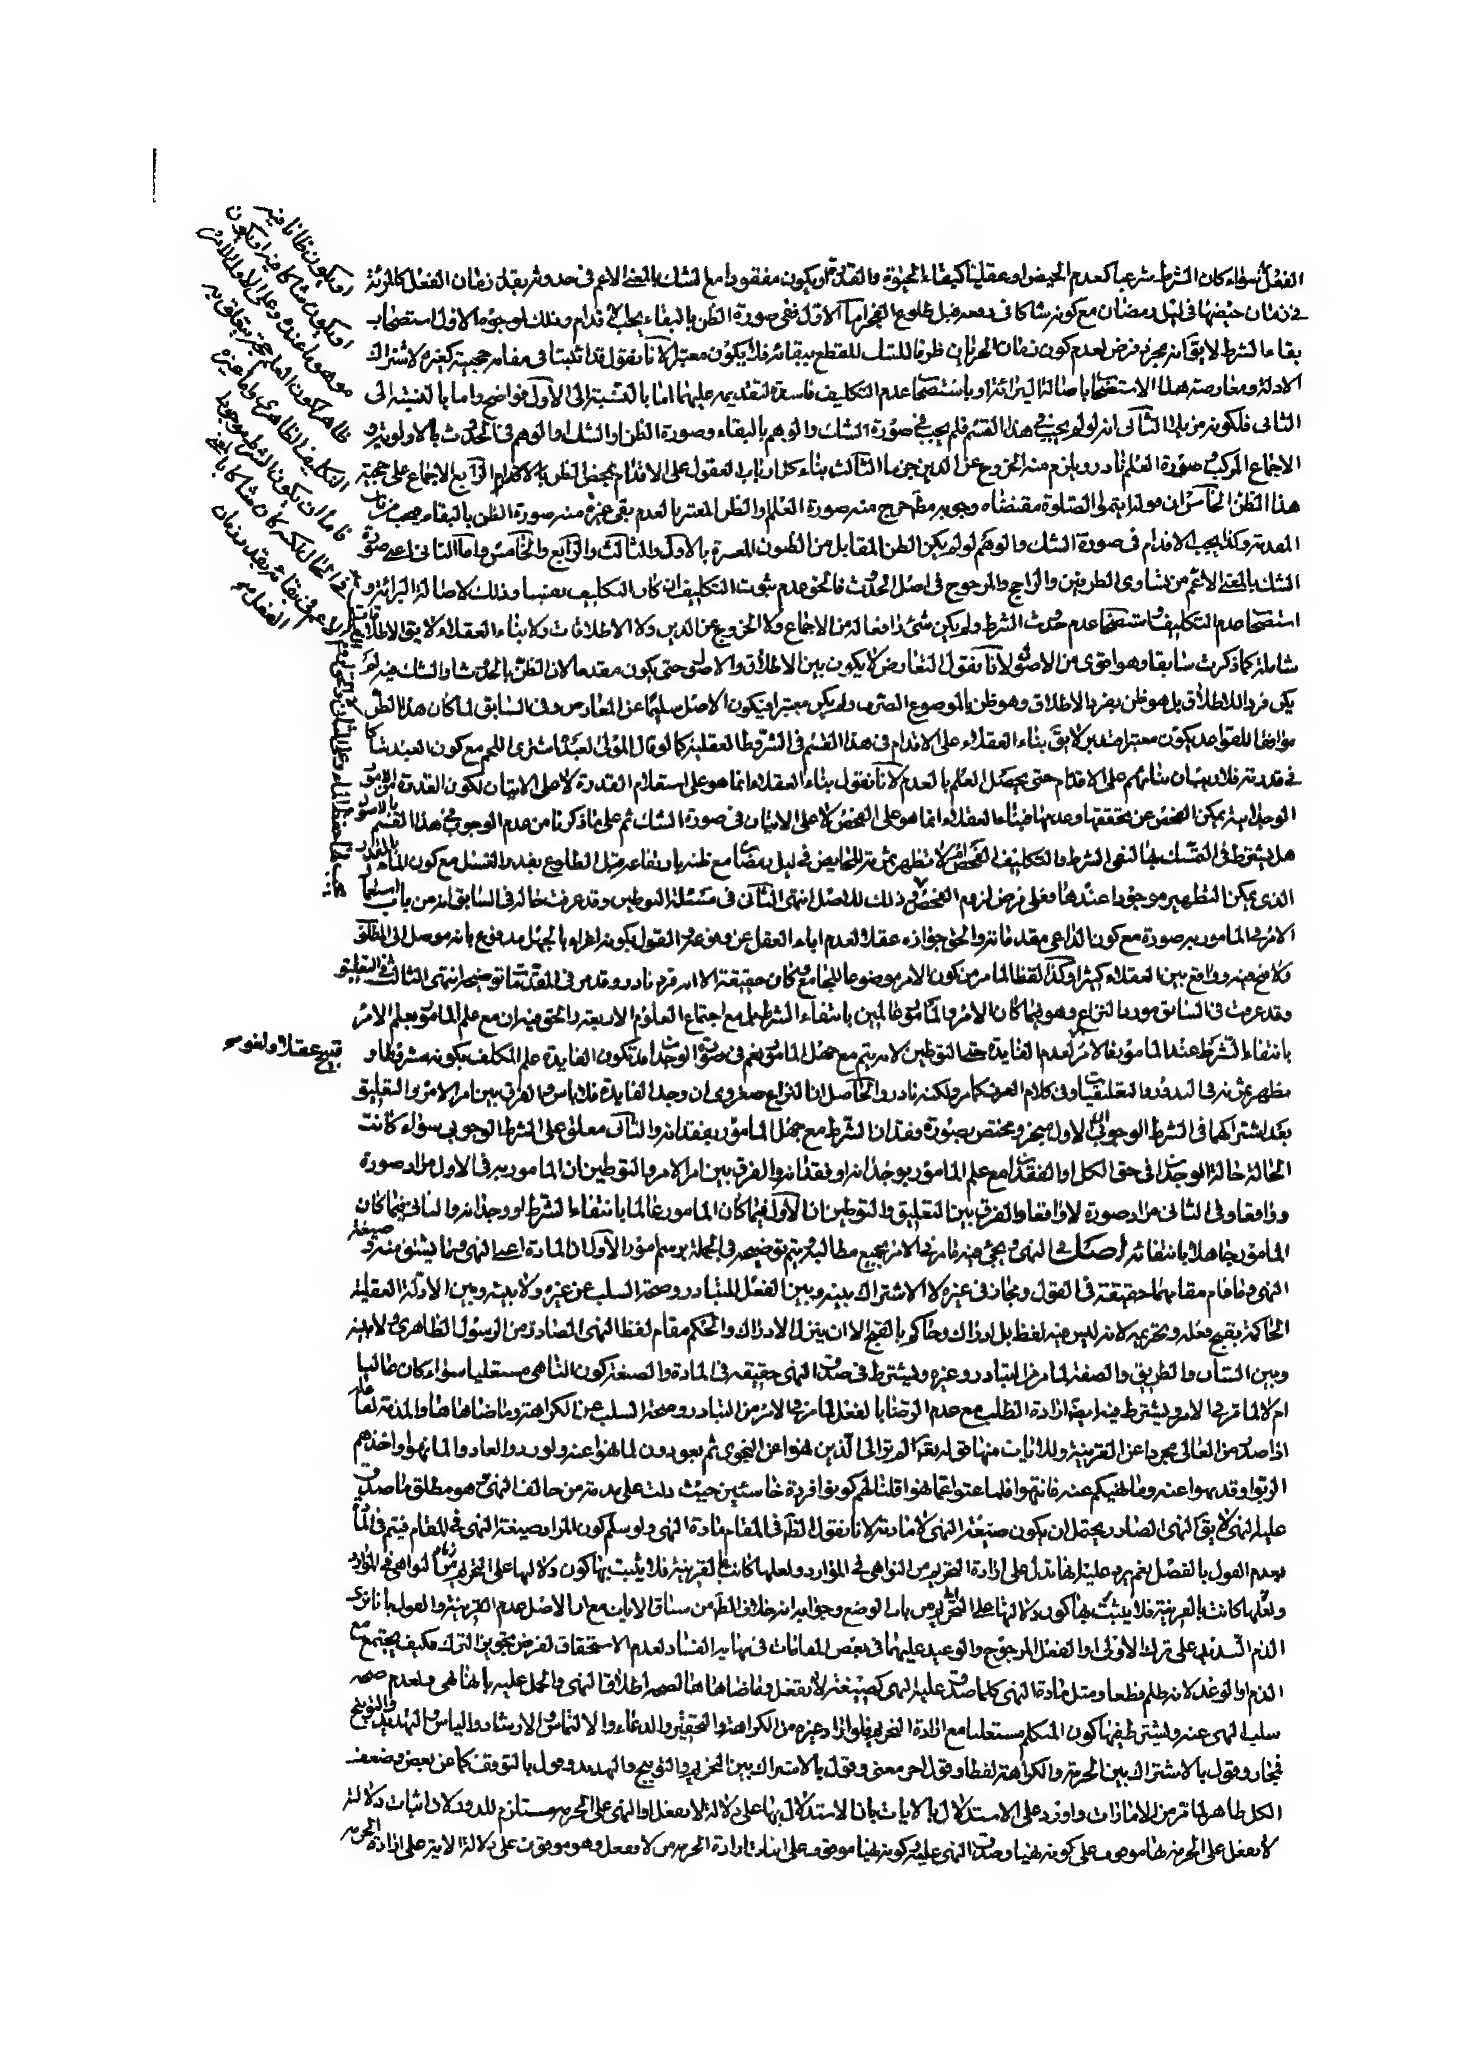 الفعل سواء كان الشرط شرعيا كعدم الحيض او عقليا كبقاء الحيوة والقدرة او يكون مفقودا مع الشك بالمعنى الاعم فى حدوثه بقدر زمان الفعل كالمرئة
فى زمان حيضها فى ليل رمضان مع كونه شاكا فى رفعه قبل طلوع الفجر اما الاول ففى صورة الظن بالبقاء يجب الاقدام وذلك لوجوه الاول استصحاب
بقاء الشرط لا يق انه مجرد فرض لعدم كون زمان ظرفا للشك للقطع ببقائه فلا يكون معتبرا لانا نقول قد اثبتنا فى مقامه حجيته كغيره لاشتراك
الادلة ومعارضة هذا الاستصحاب باصالة البرائة او باستصحاب عدم التكليف فاسدة لتقديمه عليهما اما بالنسبة الى الاول فواضح واما بالنسبة الى
الثانى فلكونه مزيلا الثانى انه لو لم يجب فى هذا القسم فلم يجب فى صورة الشك والوهم بالبقاء وصورة الظن والشك والوهم فى الحدوث بالاولوية و
الاجماع المركب وصورة العلم نادرة ويلزم منه الخروج عن الدين جزما الثالث بناء كل ارباب العقول على الاقدام بمحض الظن بالاقدام الرابع الاجماع على حجية
هذا الظن الخامس ان مولانا صلى الصلوة مقتضاه وجوبه مظ خرج منه صورة العلم والظن المعتبر بالعدم بقى غيره منه صورة الظن بالبقاء
وكذا يجب الاقدام فى صورة الشك والوهم لو لم يكن الظن المقابل من الظنون المعتبرة بالاول والثالث والرابع والخامس واما الثانى اعنى صورة
الشك بالمعنى الاعم من تساوى الطرفين والراجح والمرجوح فى اصل الحدوث فالحق عدم ثبوت التكليف ان كان التكليف وذلك لاصالة البرائة و
استصحاب عدم التكليف واستصحاب عدم حدوث الشرط ولم يكن شئ دافعا له من الاجماع ولا الخروج عن الدين ولا الاطلاقات ولا بناء العقلاء لا يق الاطلاقات
شاملة كما ذكرت سابقا وهو اقوى من الاصول لانا نقول التعارض لا يكون بين الاطلاق والاصول حتى يكون مقدما لان الظن بالحدوث والشك فيه لم
يكن فردا للاطلاق بل هو ظن بفرد الاطلاق وهو ظن بالموضوع الصرف ولم يكن معتبرا فيكون الاصل سليما عن المعارض وفى السابق لما كان هذا الظن
موافقا للقواعد يكون معتبرا لا يق بناء العقلاء على الاقدام فى هذا القسم فى الشروط العقلية كما لو قال المولى لعبده اشترى اللحم مع كون العبد شاكا
فى قدرته فلا ريب ان بنائهم على الاقدام حتى يحصل العلم بالعدم لانا نقول بناء العقلاء انما هو على استعلام القدرة لا على الاتيان لكون القدرة من الامور
الوجدانية يمكن الفحص عن تحققها وعدمها فبناء العقلاء انما هو على الفحص لا على الاتيان فى صورة الشك ثم على ما ذكرنا من عدم الوجوب فى هذا القسم
هل يشترط فى التمسك بها لنفى الشرط والتكليف الفحص ام لا تظهر ثمرته للحايض فى ليل رمضان مع ظنه بارتفاعه قبل الطلوع بقدر الغسل مع كون الماء
الذى يمكن التطهير موجودا عندها فعلى فرض لزوم الفحص وذلك للاصل انتهى الثانى فى مسئلة التوطين وقد عرفت حاله فى السابق انه من باب استعمال
الامر والمامور به صورة مع كون الداعى مقدماته والحق جوازه عقلا لعدم اباء العقل عنه وعرفا القول بكونه اغراء بالجهل مدفوع بانه موصل الى المطلوب
فلا قبح فيه وواقع بين العقلاء كثيرا وكذا لفظا لما مر من كون الامر موضوعا للجامع وكان حقيقة الا انه فرد نادر وقد مر فى المقدمات توضيحه انتهى الثالث فى التعليق
وقد عرفت فى السابق مورد النزاع وهو فيما كان الامر والمامور عالمين بانتفاء الشرط مع اجتماع العلوم الاربعة والحق فيه ان مع علم المامور بعلم الامر
بانتفاء الشرط عند المامور فالامر لعدم الفايدة حتى التوطين لانه يتم مع جهل المامور نعم فى صورة الوجدان قد تكون الفايدة علم المكلف بكونه مشروطا و
مظهر ثمرته فى النذور والتعليقيات وفى كلام العرف كما مر ولكنه نادر والحاصل ان النزاع صغروى ان وجد الفايدة فلا باس والفرق بين امر الامر والتعليق
بعد اشتراكهما فى الشرط الوجوبى ان الاول منجز ومختص بصورة فقدان الشرط مع جهل المامور بفقدانه والثانى معلق على الشرط الوجوبى سواء كانت
الحالة حالة الوجدان فى حق الكل او الفقدان مع علم المامور بوجدانه او فقدانه والفرق بين امر الامر والتوطين ان المامور به فى الاول مراد صورة
وواقعا وفى الثانى مراد صورة لا واقعا والفرق بين التعليق والتوطين ان الاول فيما كان المامور عالما بانتفاء الشرط او وجدانه والثانى فيما كان
المامور جاهلا بانتفائه اصل فى النهى ويجئ فيه ما مر فى الامر بجميع مطالبه ويتم توضيحه فى الجملة برسم امور الاول ان المادة اعنى النهى وما يشتق منه وصيغة
النهى وما قام مقامهما حقيقة فى القول ومجاز فى غيره لا الاشتراك بينه وبين الفعل للتبادر وصحة السلب عن غيره ولا بينه وبين الادلة العقلية
الحاكمة بقبح فعله وتحريمه لانه ليس فيه لفظ بل ادراك وحاكم بالقبح الا ان ينزل الادراك والحكم مقام لفظ النهى الصادر من الرسول الظاهرى ولا بينه
وبين الشان والطريق والصفة لما مر من التبادر وغيره ويشترط فى صدق النهى حقيقة فى المادة والصيغة كون الناهى مستعليا سواء كان عاليا
ام لا لما مر فى الامر ويشترط فيه ايضا ارادة الطلب مع عدم الرضا بالفعل لما مر فى الامر من التبادر وصحة السلب عن الكراهة وما ضاهاها والمذمة لفاعله
اذا صدر من العالى مجردا عن القرينة وللايات منها قوله تعالى الم تر الى الذين نهوا عن النجوى ثم يعودون لما نهوا عنه ولو ردوا لعادوا لما نهوا واخذهم
الربوا وقد نهوا عنه وما نهيكم عنه فانتهوا فلما عتوا عما نهوا قلنا لهم كونوا قردة خاسئين حيث دلت على مذمة من خالف النهى وهو مطلق ما صدق
عليه النهى لا يق النهى الصادر يحتمل ان يكون صيغة النهى لا مادته لانا نقول الظ فى المقام مادة النهى ولو سلم كون المراد صيغة النهى فى المقام فيتم فى المادة
بعدم القول بالفصل نعم يرد عليه انها تدل على ارادة التحريم من النواهى فى الموارد ولعلها كانت بالقرينة فلا يثبت بها كون دلالتها على التحريم
ولعلها كانت بالقرينة فلا يثبت بها كون دلالتها على التحريم من باب الوضع وجوابه انه خلاف الظ من سياق الايات مع ان الاصل عدم القرينة والقول بان
الذم على ترك الاولى او الفعل المرجوح والوعيد عليهما فى بعض المقامات فى نهاية الفساد لعدم الاستحقاق لفرض تجويز الترك فكيف يجتمع مع
الذم او الوعد لانه ظلم قطعا ومثل مادة النهى كلما صدق عليه النهى كصيغة لا تفعل وما ضاهاها لصحة اطلاق النهى والحمل عليه بانها نهى ولعدم صحة
سلب النهى عنه ويشترط فيها كون المتكلم مستعليا مع ارادة التحريم فلو اراد غيره من الكراهة والتحقير والدعاء والالتماس والارشاد والياس والتهديد والتوبيخ
فمجاز وقول بالاشتراك بين الحرمة والكراهة لفظا وقول اخر معنى وقول بالاشتراك بين التحريم والتوبيخ والتهديد وقول بالتوقف كما عن بعض وضعف
الكل ظاهر لما مر من الامارات واورد على الاستدلال بالايات بان الاستدلال بها على دلالة لا تفعل او النهى على الحرمة مستلزم للدور لان اثبات دلالة
لا تفعل على الحرمة بها موقوف على كونه نهيا وصدق النهى عليه وكونه نهيا موقوف على اثبات ارادة الحرمة من لا تفعل وهو موقوف على دلالة الاية على ارادة الحرمة
او يكون ظانا فيه
او يكون شاكا فيه او يكون
موهوما عنده وعلى الاول الامر
ظاهر لكون العلم حجة يتعلق به
التكليف الظاهرى واما غيره
فاما ان يكون الشرط موجودا
فى الحال لكنه كان شاكا بالمعنى
الاعم فى بقائه بقدر زمان
الفعل
قبيح عقلا ولغو